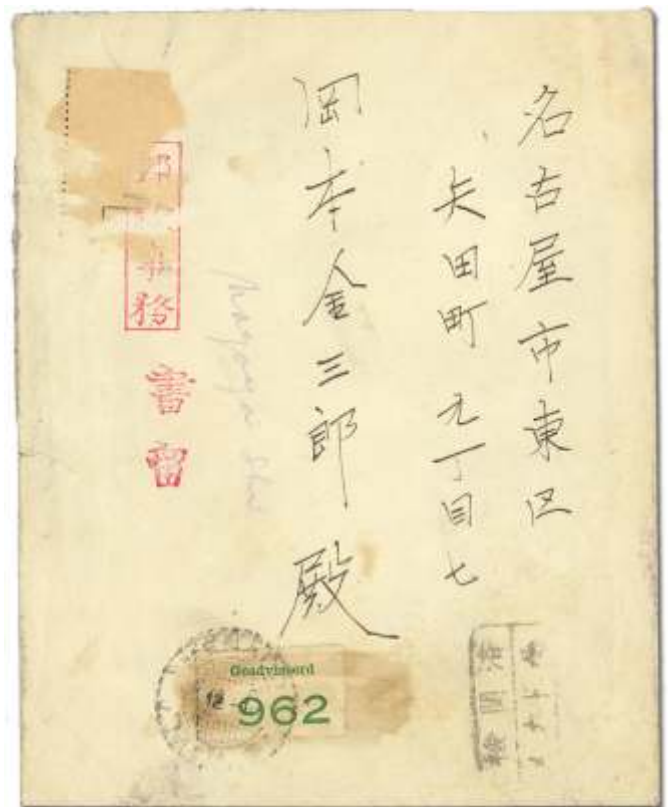 名古屋市東区
矢田町 九丁目七
岡本金三郎 殿
Nagoya Shi
務
書留
Geadviseerd
962